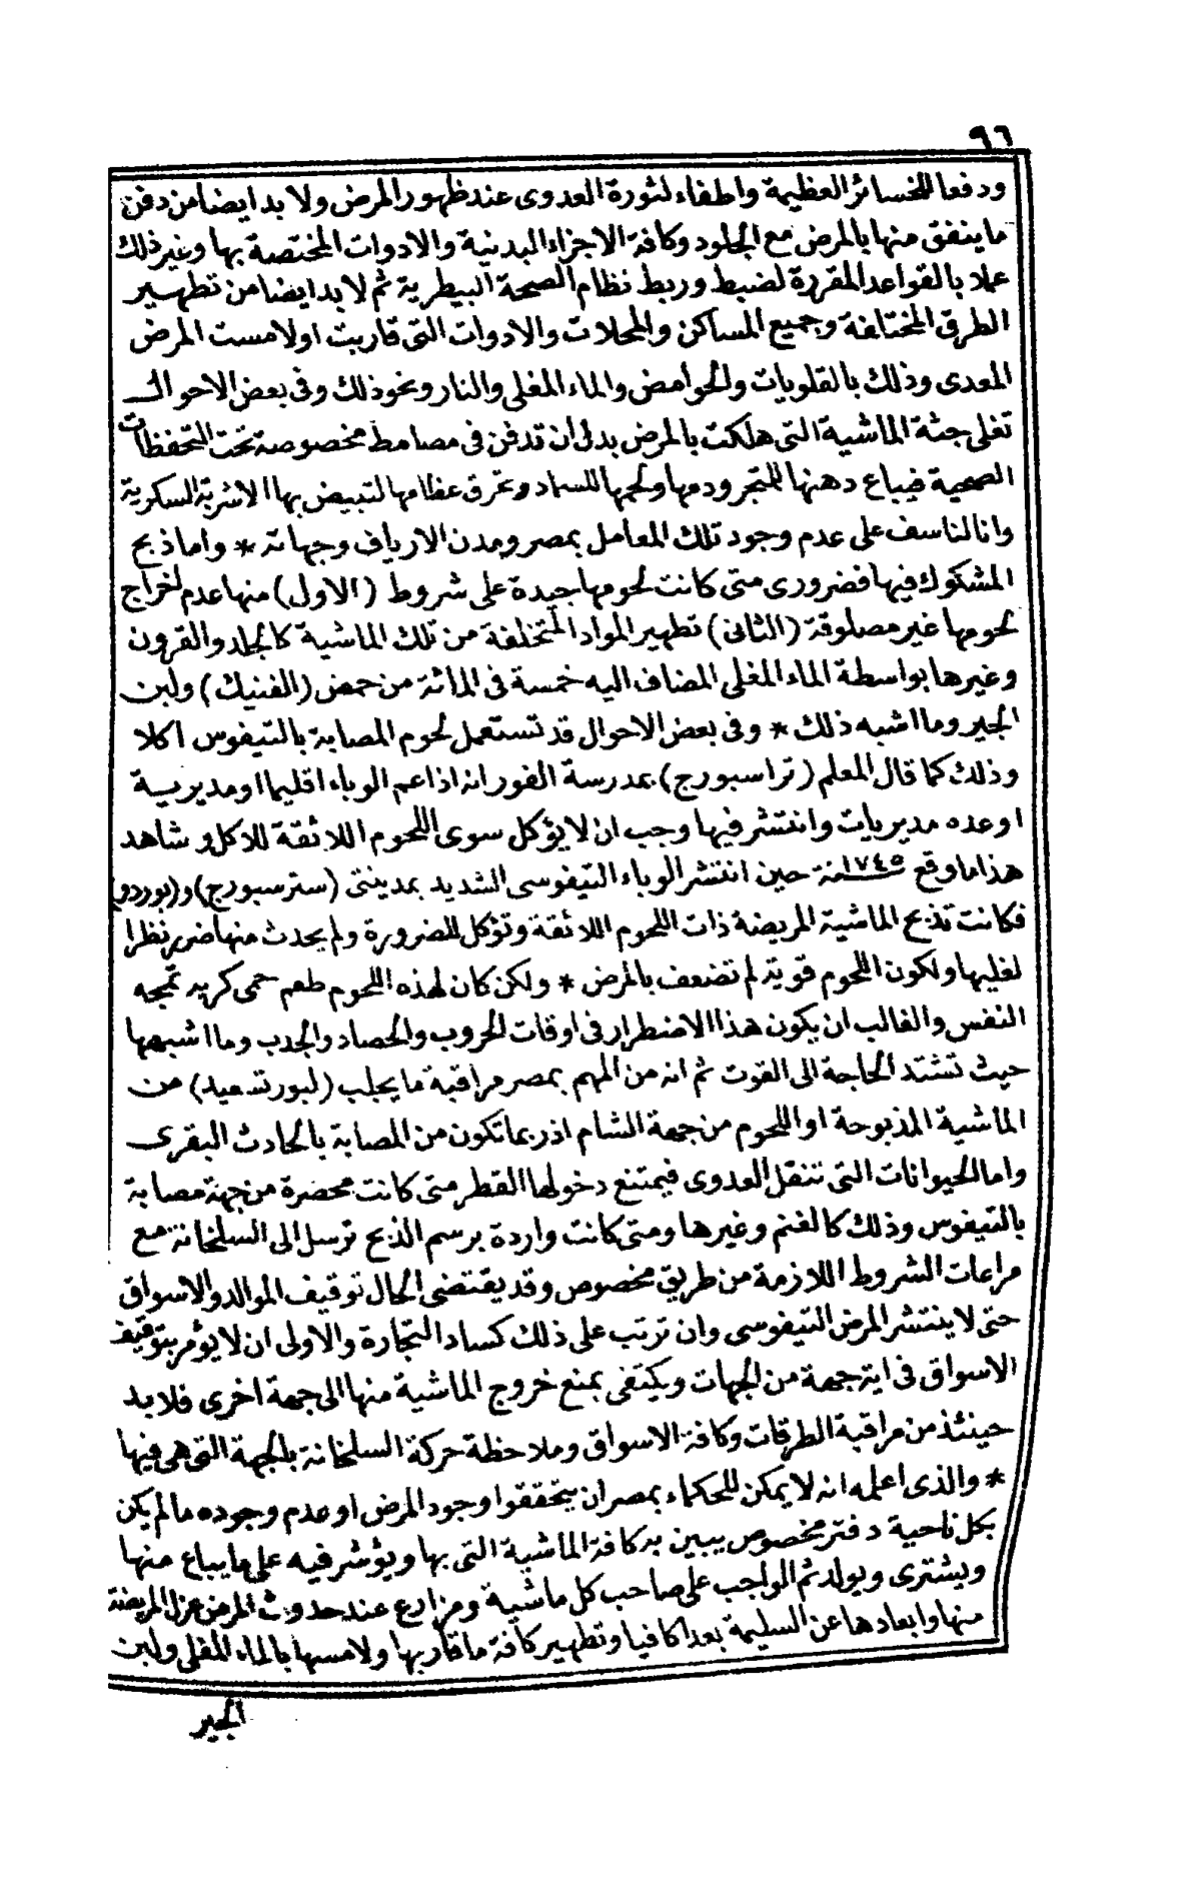 ٩٦
ودفعا للخسائر العظيمة واطفاء لثورة العدوى عند ظهور المرض ولا بد ايضا من دفن
ما ينفق منها بالمرض مع الجلود وكافة الاجزاء البدنية والادوات المختصة بها وغير ذلك
عملا بالقواعد المقررة لضبط وربط نظام الصحة البيطرية ثم لا بد ايضا من تطهير
الطرق المختلفة وجميع المساكن والمحلات والادوات التى قاربت اولامست المرض
المعدى وذلك بالقلويات والحوامض والماء المغلى والنار ونحو ذلك وفى بعض الاحوال
تغلى جثة الماشية التى هلكت بالمرض بدل ان تدفن فى مصامط مخصوصة تحت التحفظات
الصحية فيباع دهنها للمتجر ودمها ولحمها للسماد وتحرق عظامها لتبيض بها الاشربة السكرية
وانا لناسف على عدم وجود تلك المعامل بمصر ومدن الارياف وجهاته * واما ذبح
المشكوك فيها فضرورى متى كانت لحومها جيدة على شروط (الاول) منها عدم اخراج
لحومها غير مصلوقة (الثانى) تطهير المواد المتخلفة من تلك الماشية كالجلد والقرون
وغيرها بواسطة الماء المغلى المضاف اليه خمسة فى المائة من حمض (الفنيك) ولبن
الجير وما اشبه ذلك * وفى بعض الاحوال قد تستعمل لحوم المصابة بالتيفوس اكلا
وذلك كما قال المعلم (تراسبورج) بمدرسة الفور انه اذا عم الوباء اقليما او مديرية
او عده مديريات وانتشر فيها وجب ان لا يؤكل سوى اللحوم اللائقة للاكل وشاهد
هذا ما وقع ١٧٤٥ سنة حين انتشر الوباء التيفوسى الشديد بمدينتى (سترسبورج) و(بوردو)
فكانت تذبح الماشية المريضة ذات اللحوم اللائقة وتؤكل للضرورة ولم يحدث منها ضرر نظرا
لغليها ولكون اللحوم قوية لم تضعف بالمرض * ولكن كان لهذه اللحوم طعم حمى كريه تمجه
النفس والغالب ان يكون هذا الاضطرار فى اوقات الحروب والحصاد والجدب وما اشبهها
حيث تشتد الحاجة الى القوت ثم انه من المهم بمصر مراقبة ما يجلب (لبورتسعيد) من
الماشية المذبوحة او اللحوم من جهة الشام اذ ربما تكون من المصابة بالحادث البقرى
واما الحيوانات التى تنقل العدوى فيمتنع دخولها القطر متى كانت محضرة من جهة مصابة
بالتيفوس وذلك كالغنم وغيرها ومتى كانت واردة برسم الذبح ترسل الى السلخانة مع
مراعات الشروط اللازمة من طريق مخصوص وقد يقتضى الحال توقيف الموالد والاسواق
حتى لا ينتشر المرض التيفوسى وان ترتب على ذلك كساد التجارة والاولى ان لا يؤمر بتوقيف
الاسواق فى اية جهة من الجهات ويكتفى بمنع خروج الماشية منها الى جهة اخرى فلا بد
حينئذ من مراقبة الطرقات وكافة الاسواق وملاحظة حركة السلخانة بالجهة التى هى فيها
* والذى اعلمه انه لا يمكن للحكماء بمصر ان يتحققوا وجود المرض او عدم وجوده ما لم يكن
بكل ناحية دفتر مخصوص يبين به كافة الماشية التى بها ويؤشر فيه على ما يباع منها
ويشترى ويولد ثم الواجب على صاحب كل ماشية ومزارع عند حدوث المرض عزل المريضة
منها وابعادها عن السليمة بعدا كافيا وتطهير كافة ما قاربها ولامسها بالماء المغلى ولبن
الجير